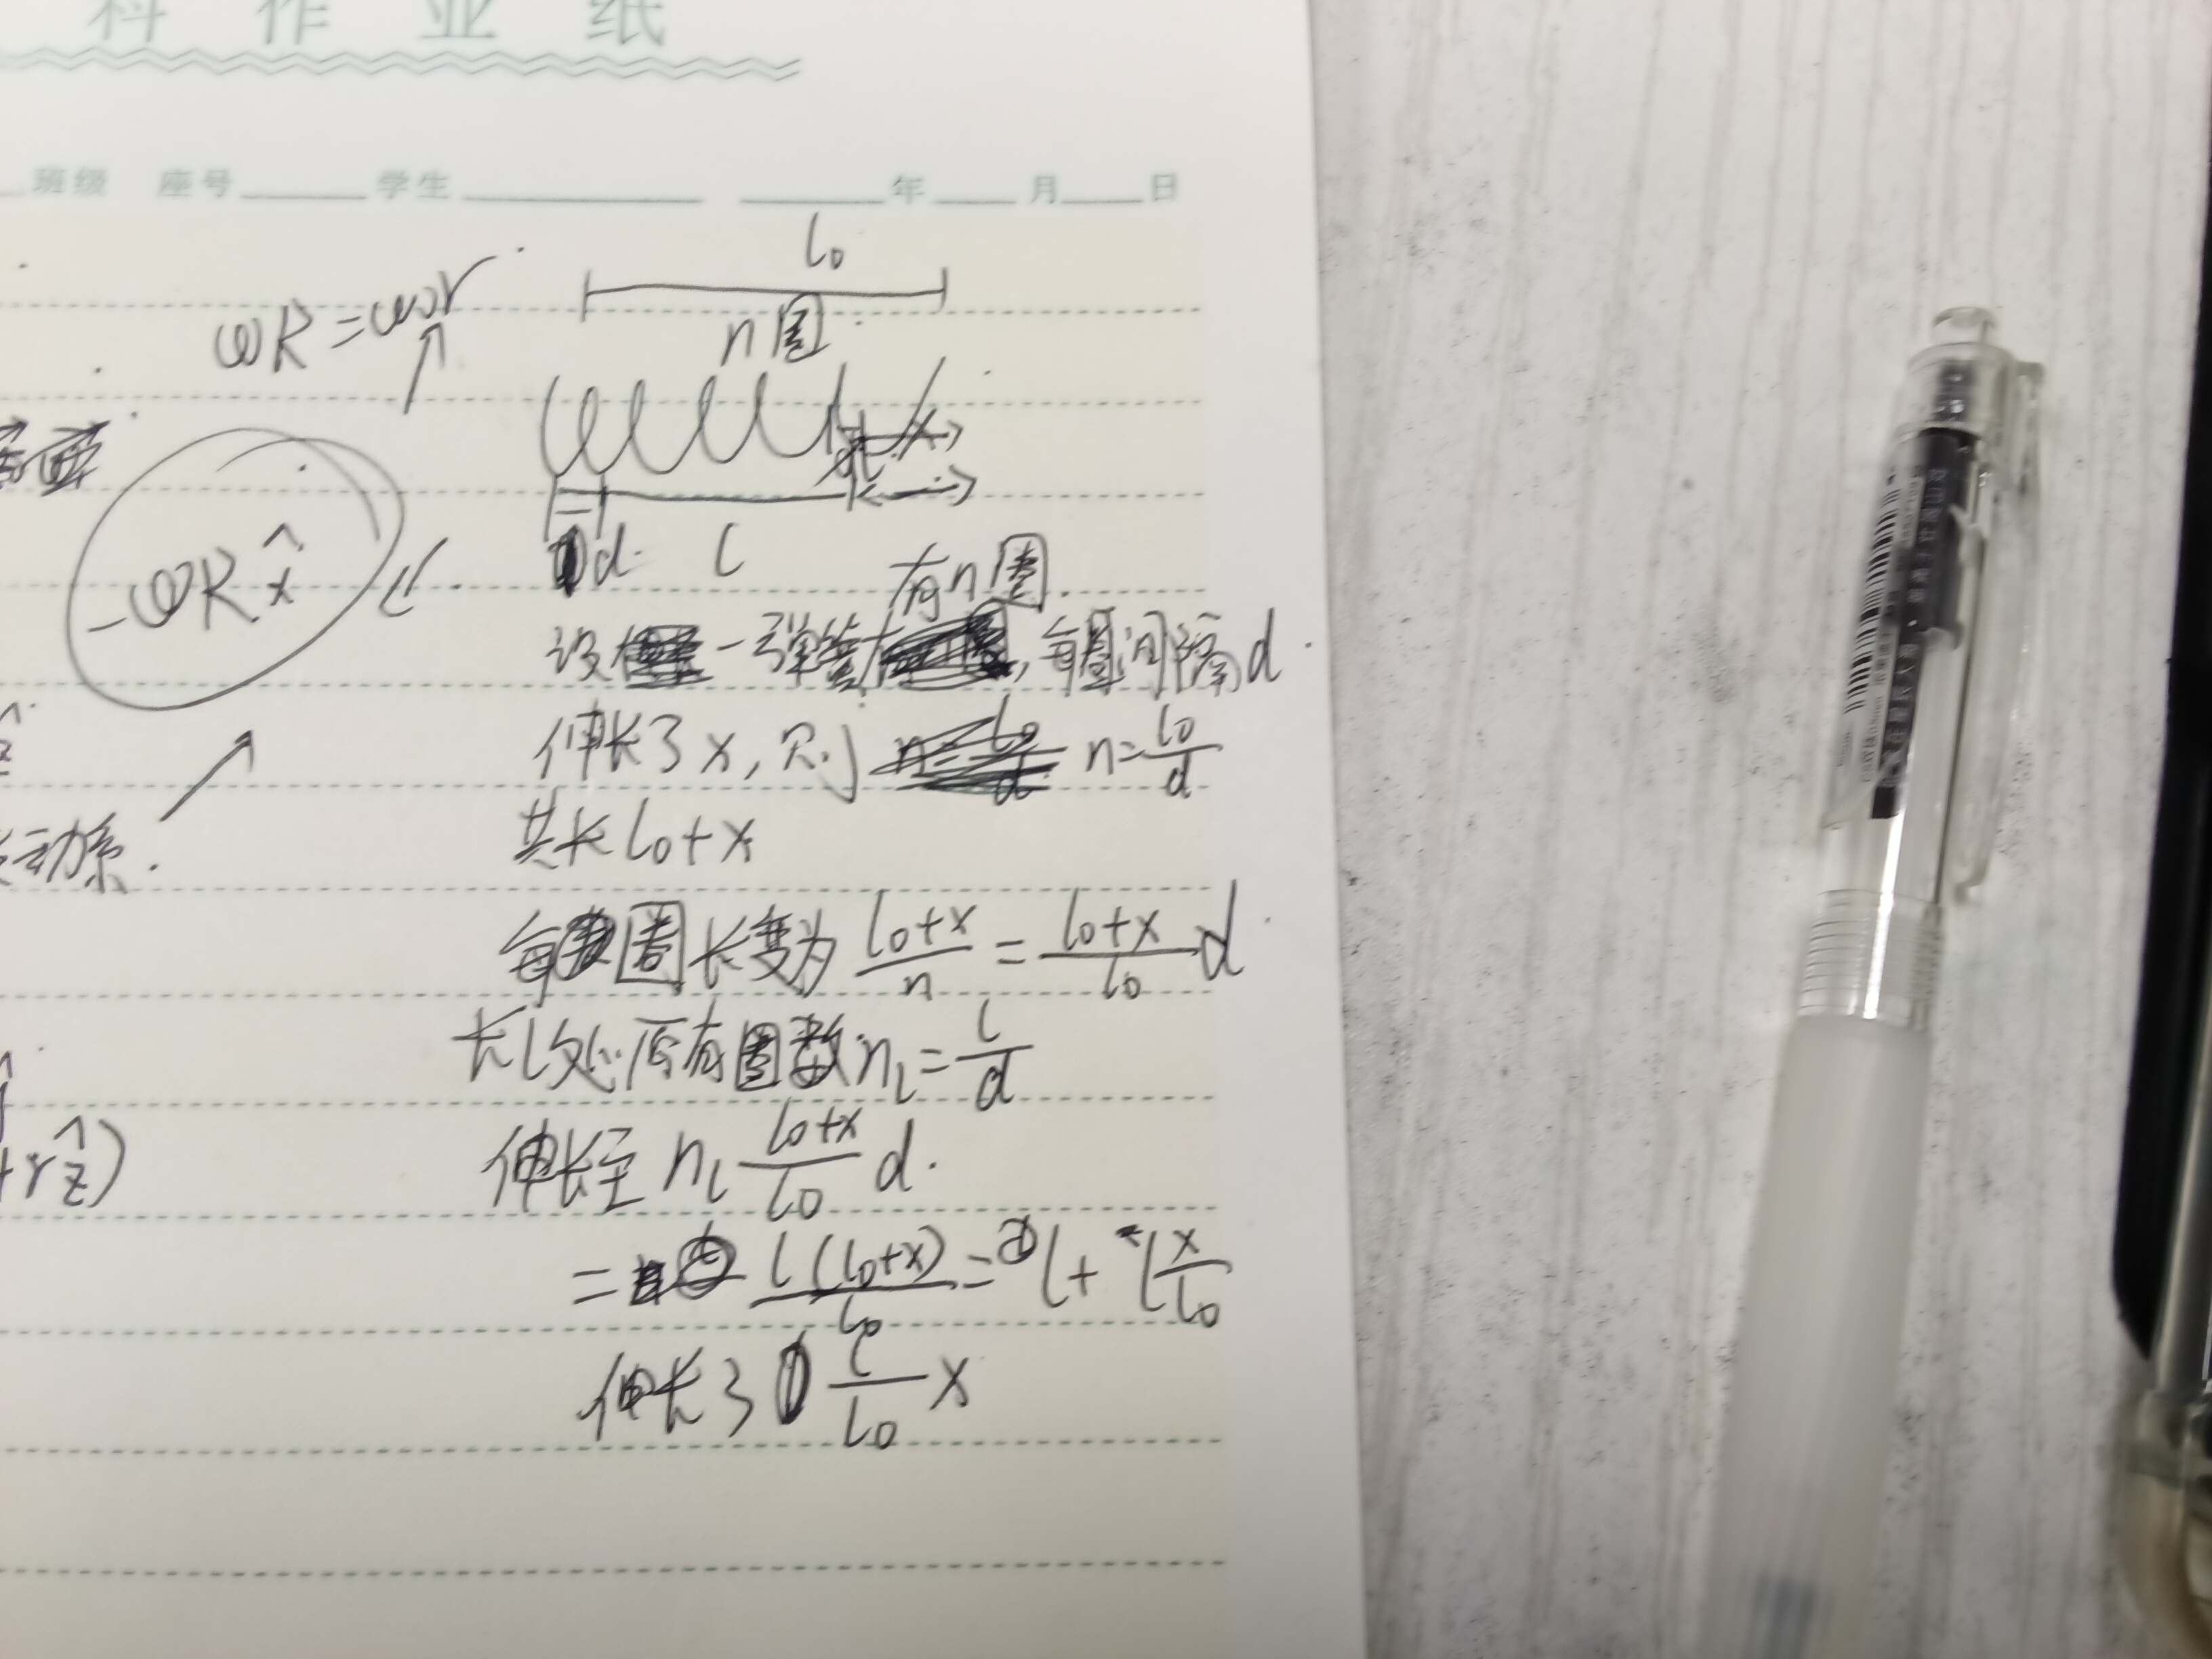 科作业纸
班级 座号 学生 年 月 日
l₀
ωR=ω₀r
n圈
-ωRx̂
d l
有n圈
设一弹簧, 每圈间隔d
伸长了x, 则 n=l₀/d
共长l₀+x
动系.
每圈长变为 (l₀+x)/n = (l₀+x)/l₀ d
长l处原有圈数 n_l = l/d
伸长至 n_l (l₀+x)/l₀ d.
+rẑ)
= l(l₀+x)/l₀ = l + l x/l₀
伸长了 l/l₀ x